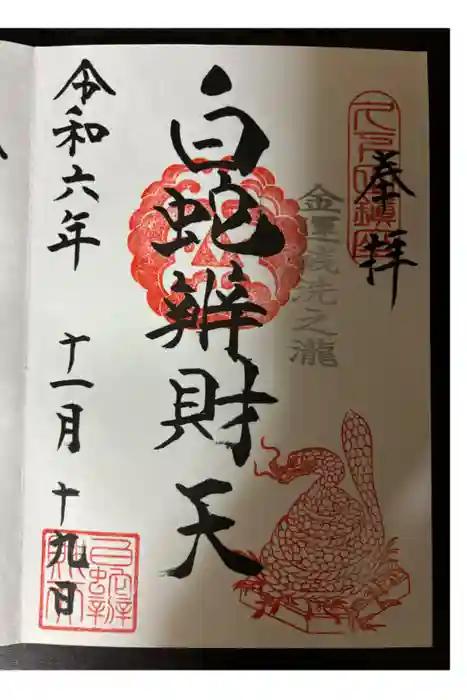 奉拝
金運銭洗之瀧
白蛇辨財天
令和六年 十一月 十九日